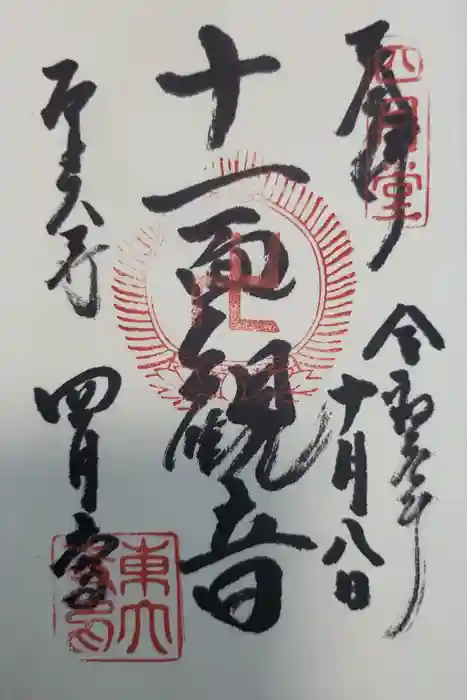 奉拝
四月堂
令和年
十月八日
十一面観音
卍
東大寺
四月堂
東大